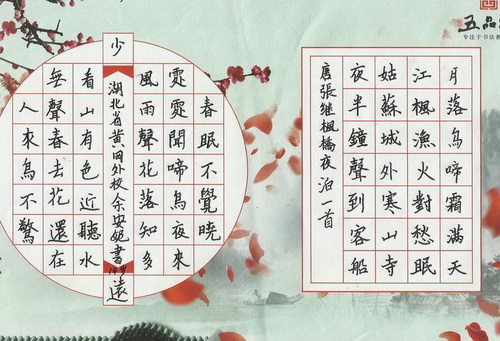 五品
专注于书法教
月落烏啼霜滿天
江楓漁火對愁眠
姑蘇城外寒山寺
夜半鐘聲到客船
唐張继楓橋夜泊一首
春眠不覺曉
處處聞啼鳥夜來
風雨聲花落知多
少
湖北省黄冈外校余安妮書
遠
看山有色近聽水
無聲春去花還在
人來鳥不驚